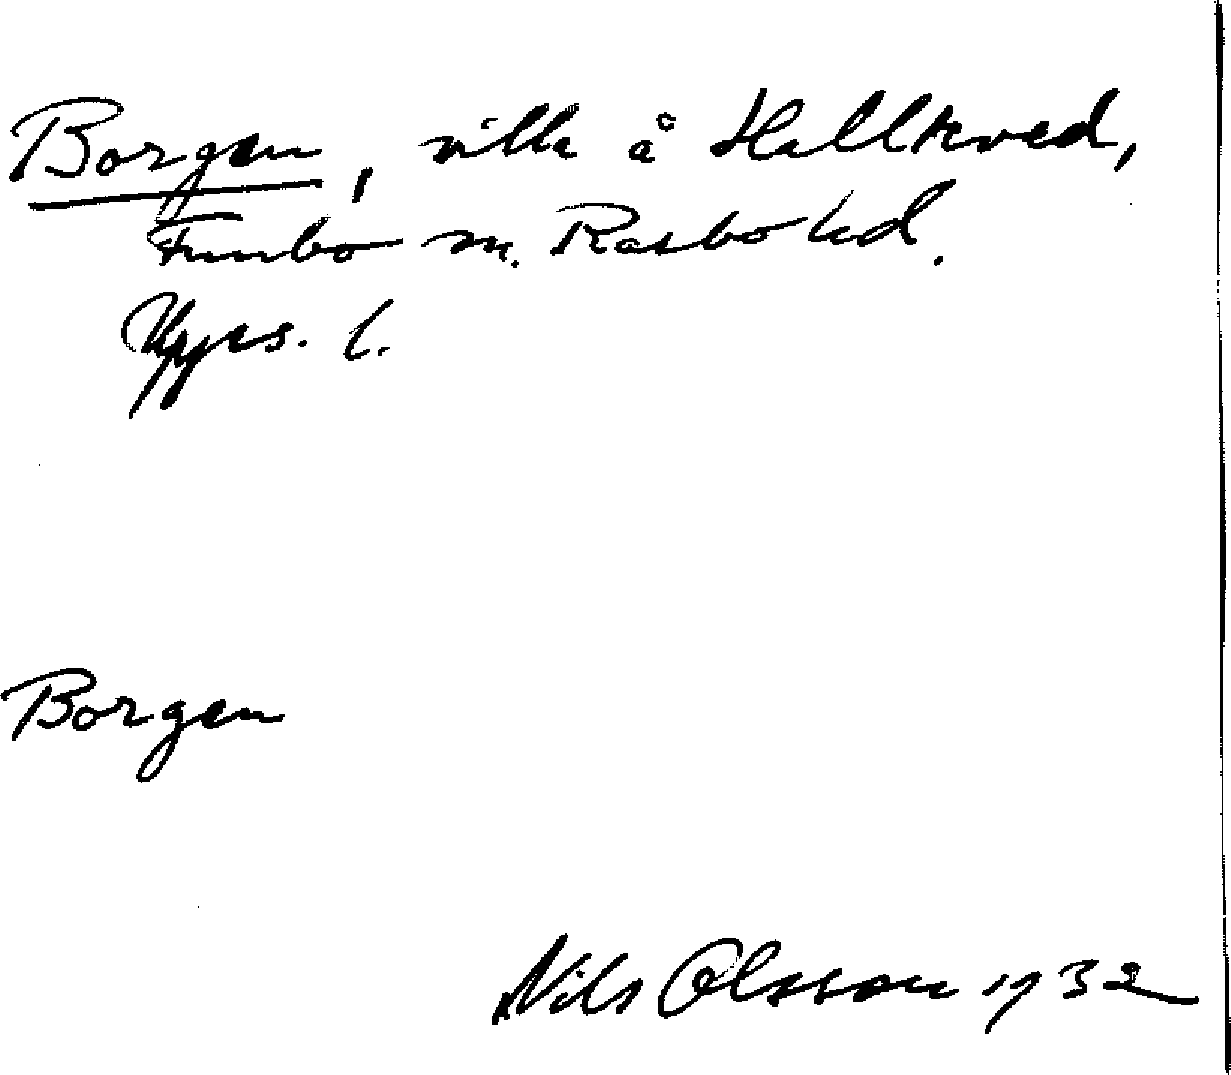 Borgen, villa å Hallkved,
Funbo sn. Rasbo hd.
Upps. l.
Borgen
Nils Olsson 1932